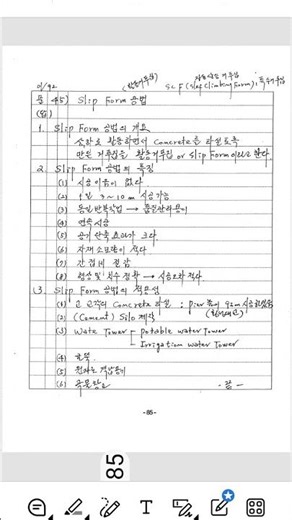 (활동거푸집)
S.C.F (Slip Climbing Form),
문 45) Slip Form 공법
(답)
1. Slip Form 공법의 개요
상하로 활동하면서 Concrete를 타설토록
만든 거푸집을 활동거푸집 or slip Form이라고 한다.
2. Slip Form 공법의 특징
(1) 시공이음이 없다.
(2) 1일 3~10m 시공가능
(3) 동일반복작업 → 품질관리용이
(4) 연속시공
(5) 공기단축 효과가 크다.
(6) 자재소모량이 적다
(7) 간접비 절감
(8) 형상 및 치수정확 → 시공오차 적다.
3. Slip Form 공법의 적용성
(1) 고교각의 Concrete 타설 : pier 높이 90m
(2) (Cement) Silo 제작
(3) Wate Tower potable water Tower
Irrigation water Tower
(4)
(5)
(6)
- 끝 -
- 85 -
85
T